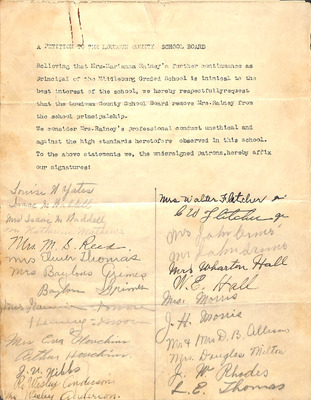 A PETITION TO THE LOUDOUN COUNTY SCHOOL BOARD
Believing that Mrs.Marianna Rainey's further continuance as
Principal of the Middleburg Graded School is inimical to the
best interest of the school, we hereby respectfullyrequest
that the Loudoun County School Board remove Mrs.Rainey from
the school principalship.
We consider Mrs.Rainey's professional conduct unethical and
against the high standards heretofore observed in this school.
To the above statements we, the undersigned patrons,hereby affix
our signatures:
Louise W Yates
Isaac N.
Mrs Isaac N.
Mrs.
Mrs. M. S. Reed.
Mrs Thomas
Mrs Baylous Grimes
Baylous Grimes
Mrs
Mrs Eva Houchins
Arthur Houchins
J. N. Gibbs
R. Wesley Anderson
Mrs Wesley Anderson.
Mrs Walter Fletcher
C W Fletcher Jr
Mrs John
John
Mrs Wharton Hall
W. E. Hall
Mrs. Morris
J. H. Morris
Mr & Mrs D. B. Allison
Mrs. Douglas Milton
J. W Rhodes
L. E. Thomas